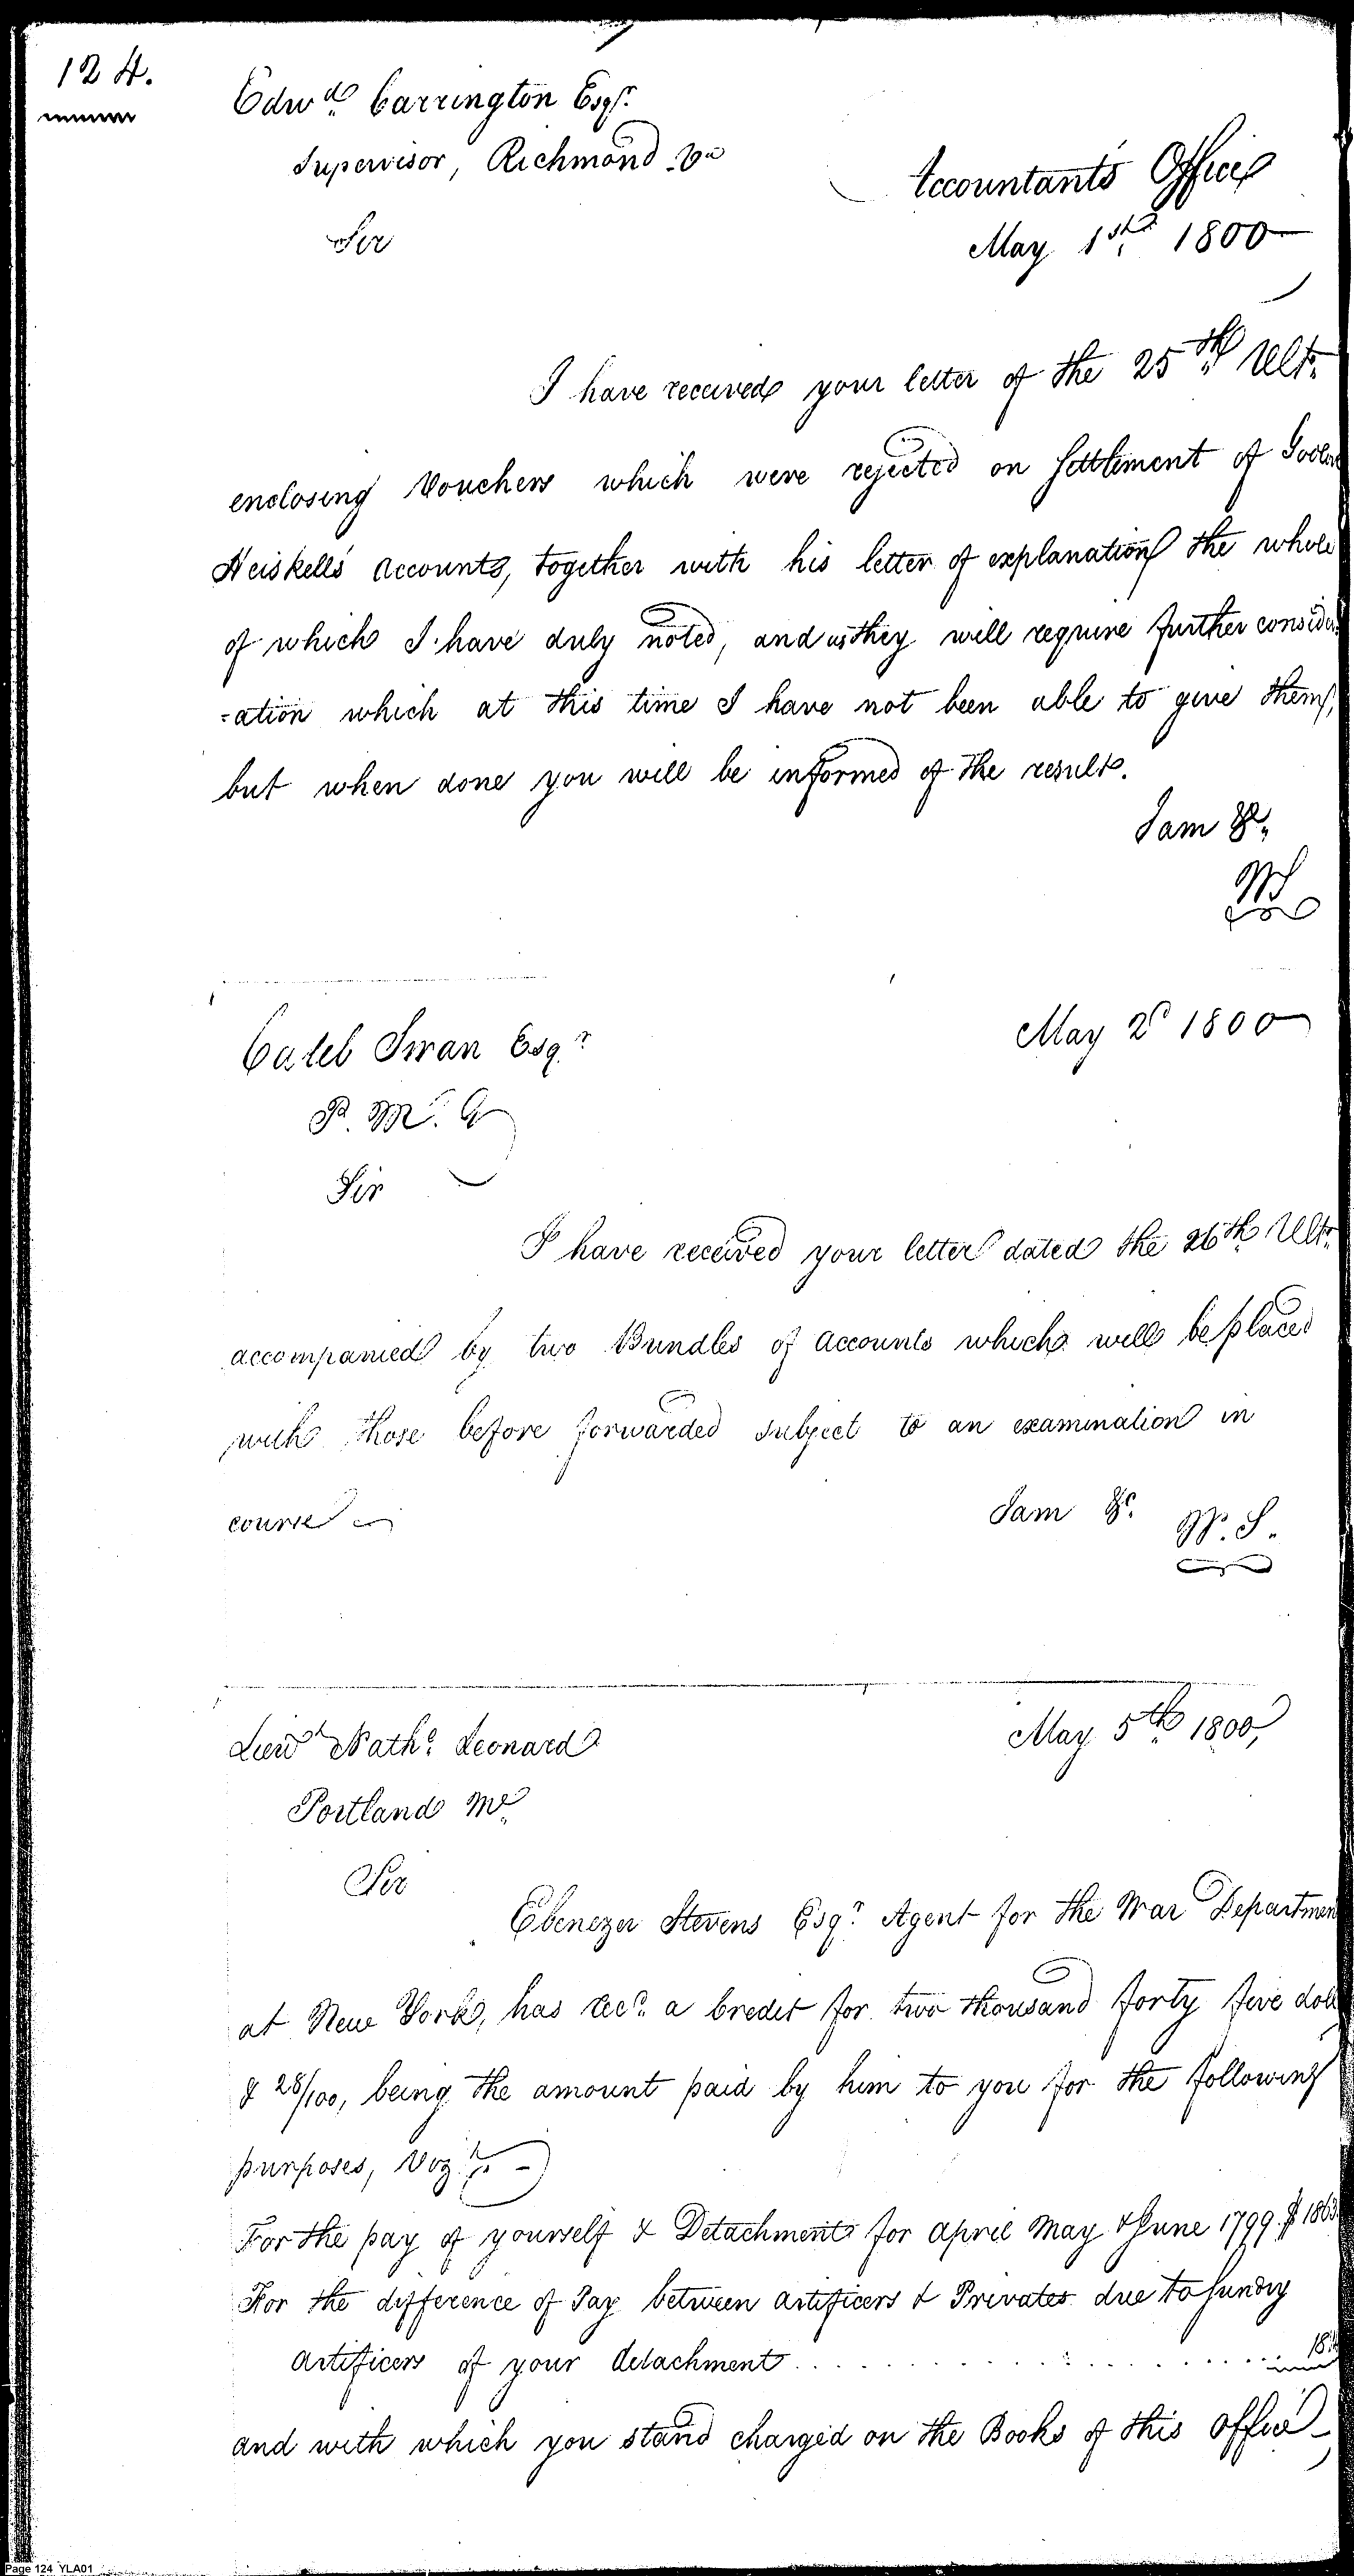 124.
Edwd. Carrington Esqr.
Supervisor, Richmond Va
Accountant's Office
May 1st. 1800
Sir
I have received your letter of the 25th. Ulto.
enclosing Vouchers which were rejected on Settlement of
Heiskell's accounts, together with his letter of explanation the whole
of which I have duly noted, and as they will require further consider
=ation which at this time I have not been able to give them,
but when done you will be informed of the result.
I am &c.
WS
May 2d 1800
Caleb Swan Esqr
P. M. G
Sir
I have received your letter dated the 26th. Ulto.
accompanied by two Bundles of accounts which will be placed
with those before forwarded subject to an examination in
course
I am &c. W. S.
May 5th. 1800,
Lieut Nathl. Leonard
Portland Me.
Sir
Ebenezer Stevens Esqr. Agent for the War Departmen
at New York, has recd. a Credit for two thousand forty five doll
& 28/100, being the amount paid by him to you for the following
purposes, Vizt.
For the pay of yourself & Detachment for April May & June 1799 $ 1863
For the difference of Pay between artificers & Privates due to sundry
artificers of your detachment
and with which you stand charged on the Books of this office
Page 124 YLA01